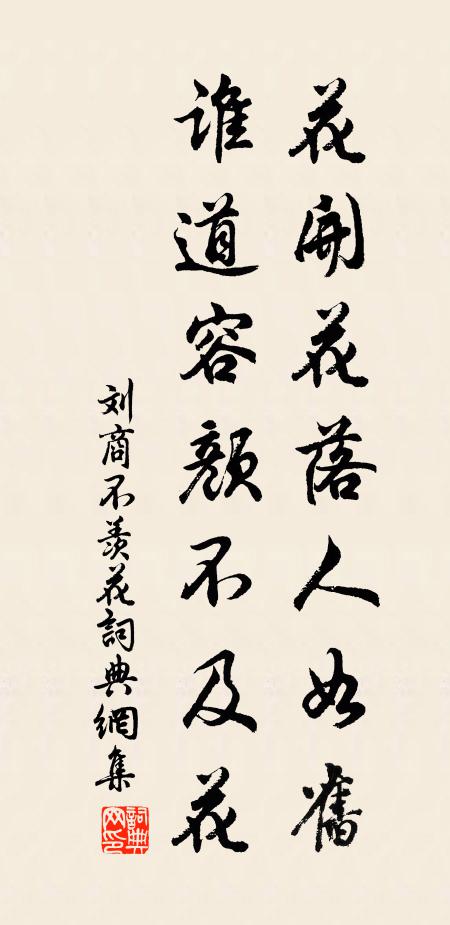 花開花落人如舊
誰道容顏不及花
刘商不羨花詞典網集
詞典网印